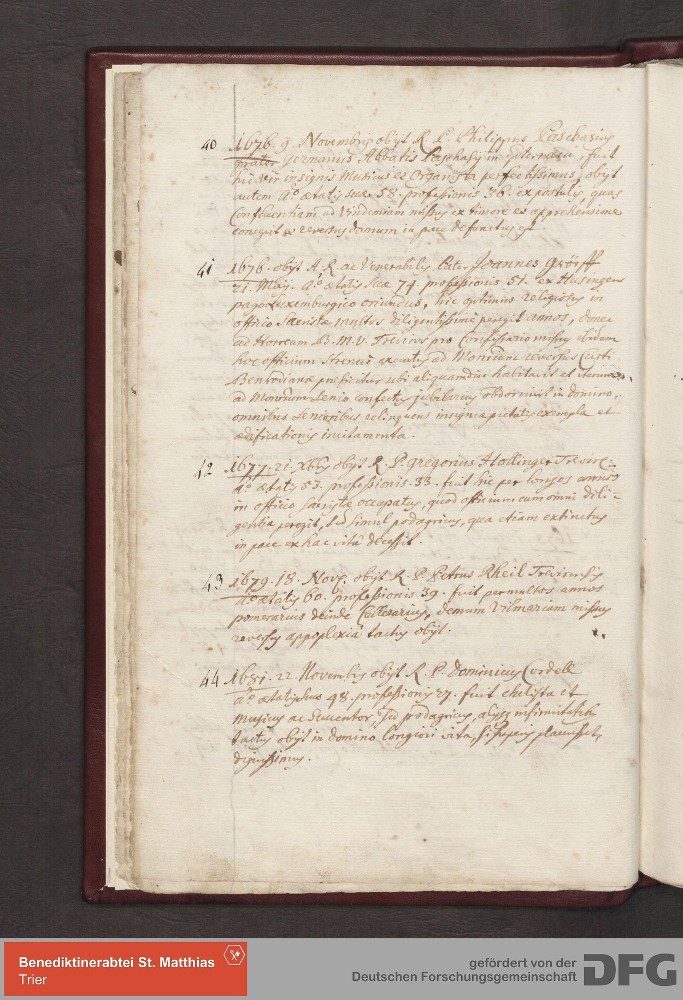 40 1676. 9. Novembris obijt R. P. Philippus Paschasius
frater germanus Abbatis Paschasij in Epternaca, fuit
hic vir insignis Musicus et Organista perfectissimus, obijt
autem a.º ætatis suæ 58. professionis 36. ex pestulis, quas
Confluentiam ad Vindemiam missus ex timore et apprehensione
concepit et reversus domum in pace defunctus est
41 1676. obijt A. R. ac Venerabilis Pater Joannes
21. Maij. a.º ætatis suæ 74. professionis 51. ex Husingen
pago Luxemburgico oriundus, hic optimus religiosus in
officio Sacristæ multos diligentissime peregit annos, donec
ad Horreum B. M. V. Treviris pro Confessario missus ibidem
hoc officium strenue executus ad Monrium reversus Casti
præficitur ubi aliquamdiu habitavit et iterum
ad Monrium senio confectus jubilarius obdormivit in domino,
omnibus senioribus relinquens insignia pietatis exempla et
ædificationis incitamenta.
42 1677. 21. Xbris obijt R. P. Gregorius Hottinger Trevir
a.º ætatis 53. professionis 33. fuit hic per longos annos
in officio Sacristæ occupatus, quod officium cum omni dili=
gentia peregit, sed simul podagricus, qua etiam extinctus
in pace ex hac vitâ decessit.
43 1679. 18. Novs. obijt R. P. Petrus Rheil Trevirensis
a.º ætatis 60. professionis 39. fuit per multos annos
pomerarius deinde Cellerarius, demum Vilmariam missus
reversus appoplexiâ tactus obijt.
44 1681. 22 Novembris obijt R. P. Dominicus Cordell
a.º ætatis suæ 48. professionis 27. fuit chelista et
Musicus ac Succentor, sed podagricus, alijsq infirmitatib
tactus obijt in domino longiori vita, si superis placuisset,
dignissimus.
Benediktinerabtei St. Matthias
Trier
gefördert von der
Deutschen Forschungsgemeinschaft
DFG